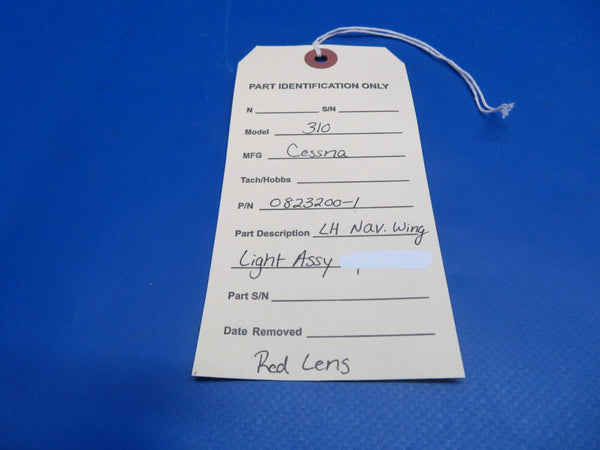 PART IDENTIFICATION ONLY
N S/N
Model 310
MFG Cessna
Tach/Hobbs
P/N 0823200-1
Part Description LH Nav. Wing
Light Assy
Part S/N
Date Removed
Red Lens